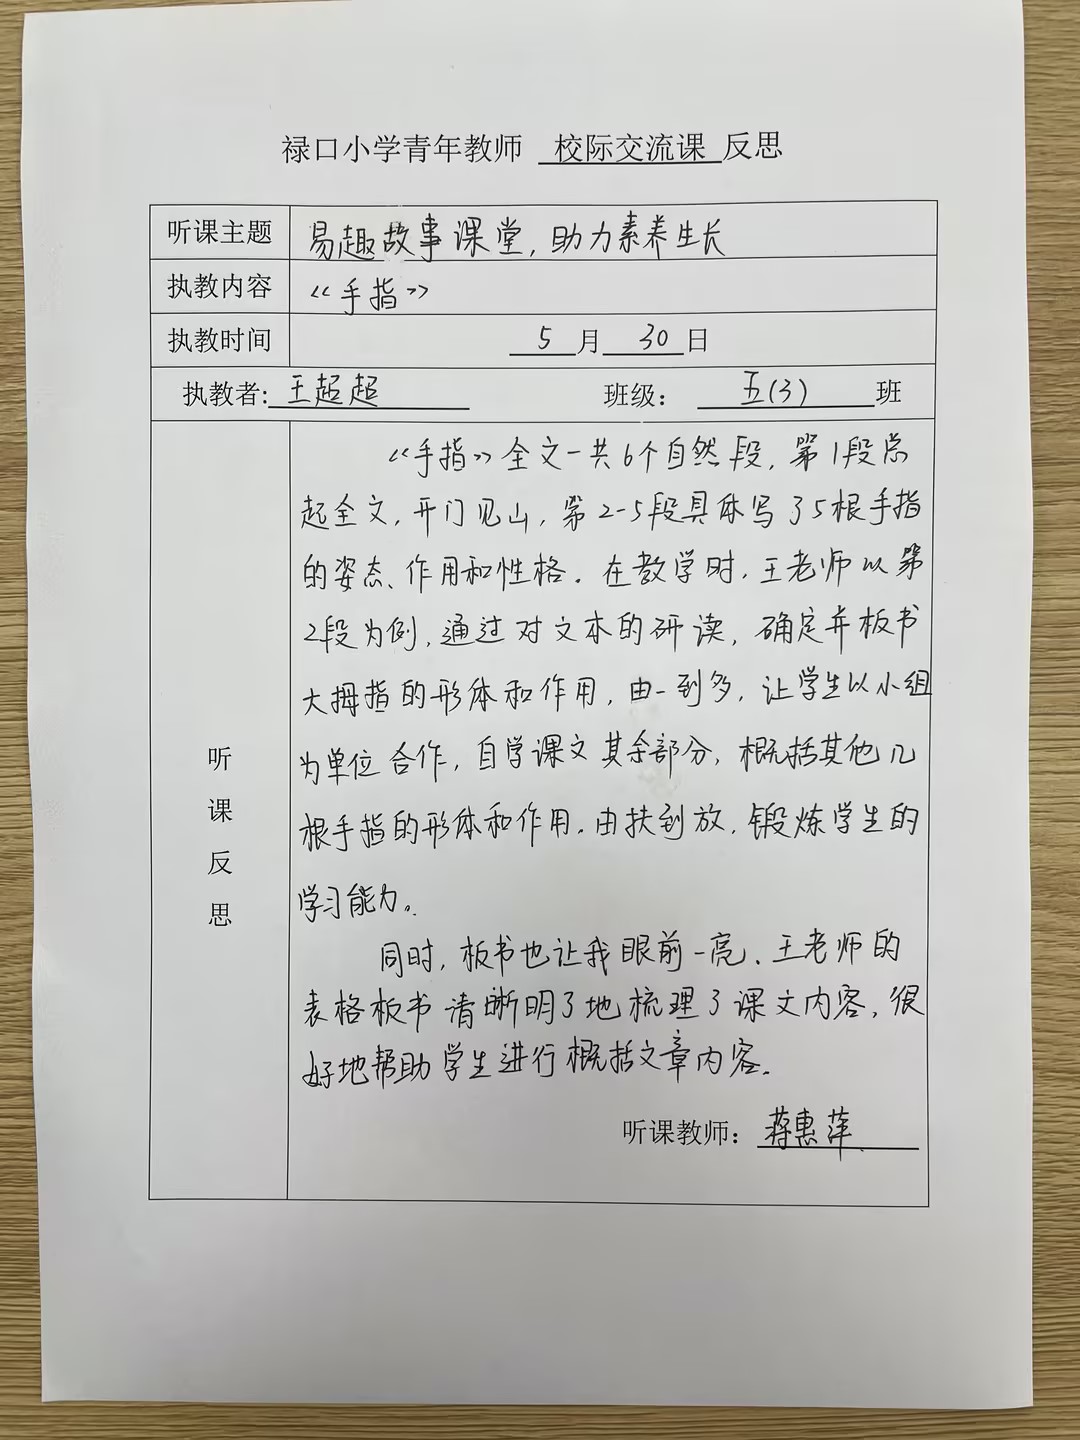 禄口小学青年教师 校际交流课 反思
听课主题 易趣故事课堂，助力素养生长
执教内容 《手指》
执教时间 5月30日
执教者: 王超超 班级： 五(3) 班
听课反思
《手指》全文一共6个自然段，第1段总
起全文，开门见山，第2-5段具体写了5根手指
的姿态、作用和性格。在教学时，王老师以第
2段为例，通过对文本的研读，确定并板书
大拇指的形体和作用，由一到多，让学生以小组
为单位合作，自学课文其余部分，概括其他几
根手指的形体和作用。由扶到放，锻炼学生的
学习能力。
同时，板书也让我眼前一亮、王老师的
表格板书清晰明了地梳理了课文内容，很
好地帮助学生进行概括文章内容。
听课教师：蒋惠萍